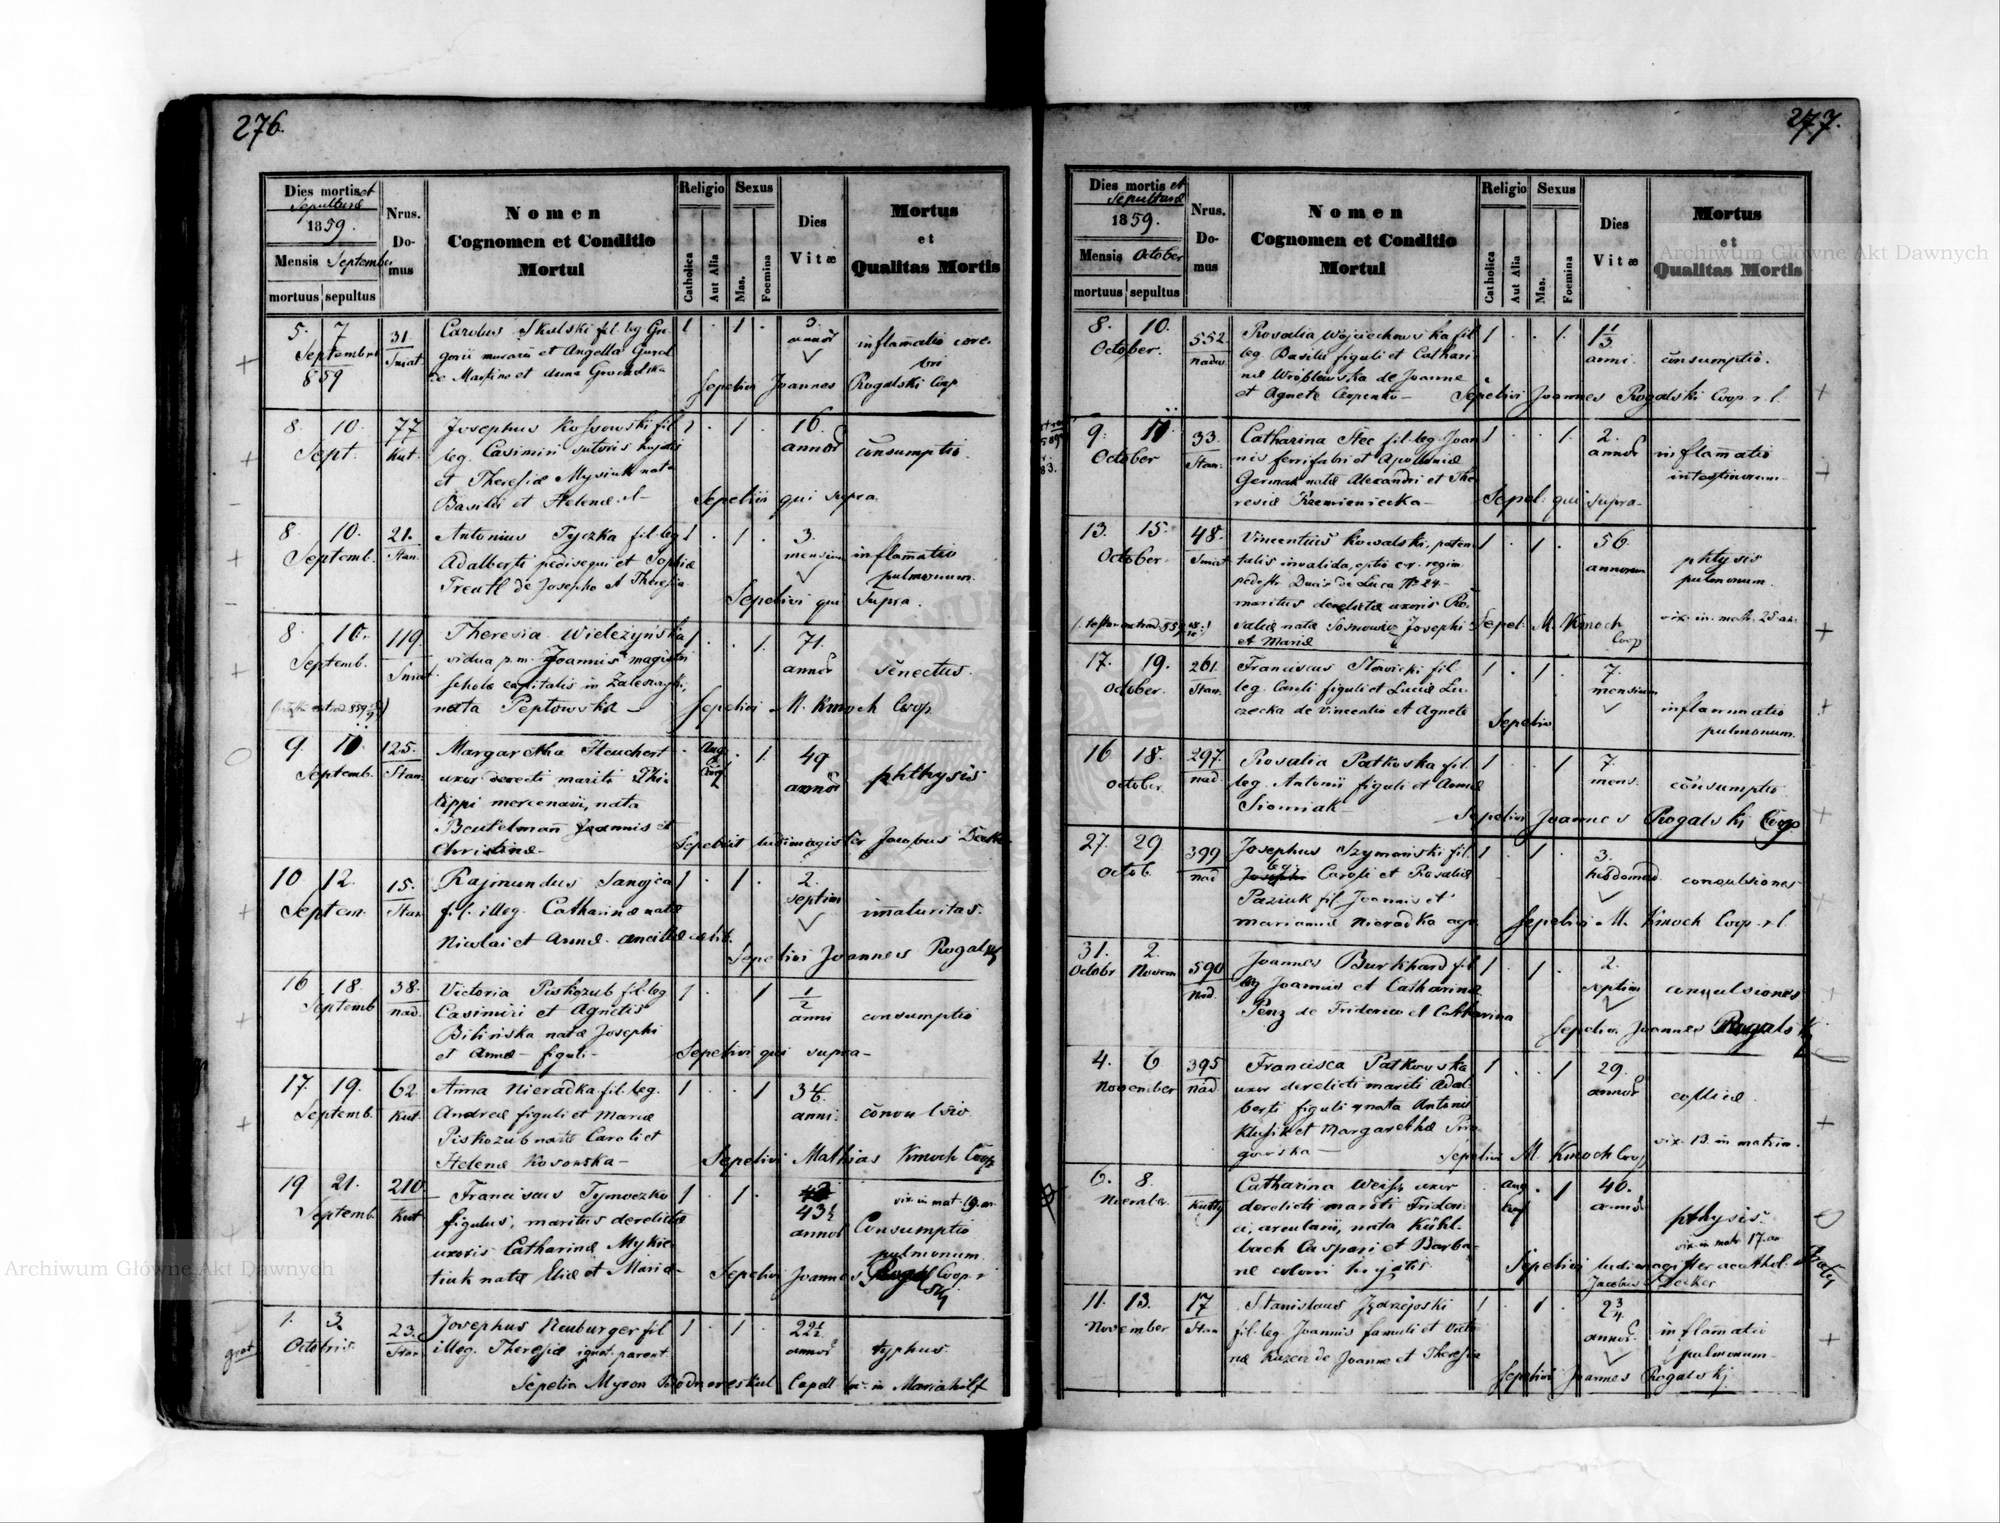 276.
Dies mortis et
Sepulturæ
1859.
Mensis September
mortuus sepultus
Nrus.
Do-
mus
Nomen
Cognomen et Conditio
Mortui
Religio
Catholica
Aut Alia
Sexus
Mas.
Foemina
Dies
Vitæ
Mortus
et
Qualitas Mortis
5. 7 31. Carolus Skulski fil. leg Gre- 1 . 1 . 3.
Septembris Sniat gorii murarii et Angella Gural annor inflamatio cere-
859 bri
Sepelivi Joannes Rogalski Coop
8. 10. 77 Josephus Kossowski fil 1 . 1 . 16.
Sept. Kut. leg. Casimiri sutoris annor consumptio
et Theresiæ Mysiuk natæ
Basilii et Helenæ
Sepelii qui supra.
8 10. 21. Antonius Tyczka fil leg 1 . 1 . 3.
Septemb. Stan. Adalberti pedissequi et Sophiæ mensium inflamatio
Treatl de Josepho et Theresia pulmonum.
Sepelivi qui Supra.
8 10. 119 Theresia Wieleżyńska 1 . . 1. 71.
Septemb. Sniat vidua p.m. Joannis magistri annor senectus.
scholæ capitalis in Zaleszczyki,
nata Peptowska
Sepelivi M. Kmoch Coop.
9. 11. 125. Margaretha Heuchert . Aug . 1. 49
Septemb. Stan. uxor derelicti mariti Phi- Conf annor phthysis
lippi mercenarii, nata
Beutelmañ Joannis et
Christinæ
Sepelivit ludimagister Jacobus Decker
10 12. 15. Rajmundus Sanojca 1 . 1 . 2.
Septem. Stan. fil. illeg. Catharinæ natæ septim imaturitas.
Nicolai et Annæ ancillæ cælib.
Sepelivi Joannes Rogalski
16 18. 38. Victoria Piskozub fil leg 1 . . 1 1/2
Septemb nad. Casimiri et Agnetis anni consumptio
Bilińska natæ Josephi
et Annæ figuli
Sepelivi qui supra
17. 19. 62. Anna Nieradka fil. leg. 1 . . 1
Septemb. Kut. Andreæ figuli et Mariæ anni
Piskozub natæ Caroli et
Helenæ Kosowska
Sepelivi Mathias Kmoch Coop
19 21. 210. Franciscus Tymoczko 1 . 1 . vix. in mat. 19. an.
Septemb. Kut. figulus, maritus derelictæ 43½ annor Consumptio
uxoris Catharinæ Mykie- pulmonum
tiuk natæ Eliæ et Mariæ
Sepelivi Joannes Rogalski Coop. r.
1. 3. 23. Josephus Neuburger fil 1 . 1 . 22½
Octobris. Stan. illeg. Theresiæ ignot. parent annor typhus.
Sepelia Myron in Mariahilf
277.
Dies mortis et
Sepulturæ
1859.
Mensis October
mortuus sepultus
Nrus.
Do-
mus
Nomen
Cognomen et Conditio
Mortui
Religio
Catholica
Aut Alia
Sexus
Mas.
Foemina
Dies
Vitæ
Mortus
et
Qualitas Mortis
8. 10. 552. Rosalia Wojciechowska fil 1 . . 1.
October. nadw. leg. Basilii figuli et Cathari- anni. consumptio.
næ Wróblewska de Joanne
et Agnete Czopenko
Sepelivi Joannes Rogalski Coop. r. l.
9. 11. 33. Catharina Stec fil. leg. Joan 1 . . 1. 2.
October Stan. nis ferrifabri et Apoloniæ annor inflamatio
German natæ Alexandri et The- intestinorum
resiæ Krzemieniecka
Sepel. qui supra
13. 15. 48. Vincentius Kowalski, paten 1 . 1 . 56
October. Sniat talis invalida, regim. annorum phtysis
pedestr. Ducis de Lucca N 24 pulmonum.
maritus derelictæ uxoris Ro-
saliæ natæ Sosnowicz Josephi
et Mariæ
Sepel. M. Kmoch Coop vix. in mat. 25 an.
17. 19. 261. Franciscus Słowicki fil. 1 . 1 . 7.
October. Stan. leg. Caroli figuli et Luciæ Lu- mensium inflammatio
czecka de Vincentio et Agnete pulmonum.
Sepelivi
16 18. 297. Rosalia Patkoska fil. 1 . . 1 7.
October. nad. leg. Antonii figuli et Annæ mens. consumptio
Siomiak
Sepelivi Joannes Rogalski Coop
27. 29. 399 Josephus Szymański fil. 1 . 1 . 3.
Octob. nad leg. Caroli et Rosaliæ hebdomad. convulsiones
Paziuk fil. Joannis et
mariannæ Nieradka
Sepelivi M. Kmoch Coop. r. l.
31. 2. 590 Joannes Burkhard fil 1 . 1 . 2.
Octobr Novem Nad. leg Joannis et Catharina septim convulsiones
Penz de Friderico et Catharina
Sepelivi Joannes Rogalski
4. 6 395 Francisca Patkowska 1 . . 1 29.
November nad. uxor derelicti mariti Adal- annor
berti figuli nata Antonii
Klusik et Margarethæ
Sepelivi M. Kmoch Coop vix. 13. in matrim.
6. 8. Catharina Weiss uxor Aug 1 40.
November Kutty derelicti mariti Fridori- Conf annor phtysis
ci, arcularii, nata Kühl- vix. in mat. 17. an
bach Caspari et Barba-
ræ coloni
Sepelivi ludimagister acathol.
Jacobus Decker
11. 13. 17 Stanislaus Jędrzejoski 1 . 1 . 2¾
November Stan fil. leg. Joannis famuli et Victo- annor. inflamatio
riæ Kuzer de Joanne et Theresia pulmonum
Sepelivi Joannes Rogalski
Archiwum Główne Akt Dawnych
Archiwum Główne Akt Dawnych